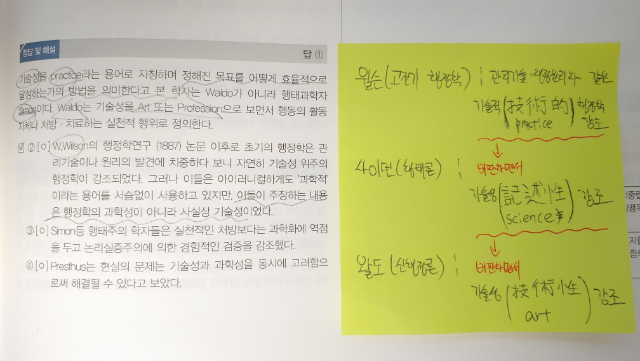 정답 및 해설
답 ①
기술성을 practice라는 용어로 지칭하며 정해진 목표를 어떻게 효율적으로
달성하는가의 방법을 의미한다고 본 학자는 Waldo가 아니라 행태과학자
Simon이다. Waldo는 기술성을 Art 또는 Profession으로 보면서 행동의 활동
처방·치료하는 실천적 행위로 정의한다.
②[○] W.Wilson의 행정학연구(1887) 논문 이후로 초기의 행정학은 관
리기술이나 원리의 발견에 치중하다 보니 자연히 기술성 위주의
행정학이 강조되었다. 그러나 이들은 아이러니컬하게도 '과학적'
이라는 용어를 서슴없이 사용하고 있지만, 이들이 주장하는 내용
은 행정학의 과학성이 아니라 사실상 기술성이었다.
③[○] Simon등 행태주의 학자들은 실천적인 처방보다는 과학화에 역점
을 두고 논리실증주의에 의한 경험적인 검증을 강조했다.
④[○] Presthus는 현실의 문제는 기술성과 과학성을 동시에 고려함으
로써 해결될 수 있다고 보았다.
윌슨(고전기 행정학) ; 관리기술·행정원리와 같은
기술적(技術的) 행정학
practice 강조
비판하면서
사이먼(행태론) ;
기술성(記述性) 강조
science
비판하면서
왈도(신행정론) ;
기술성(技術性) 강조
art